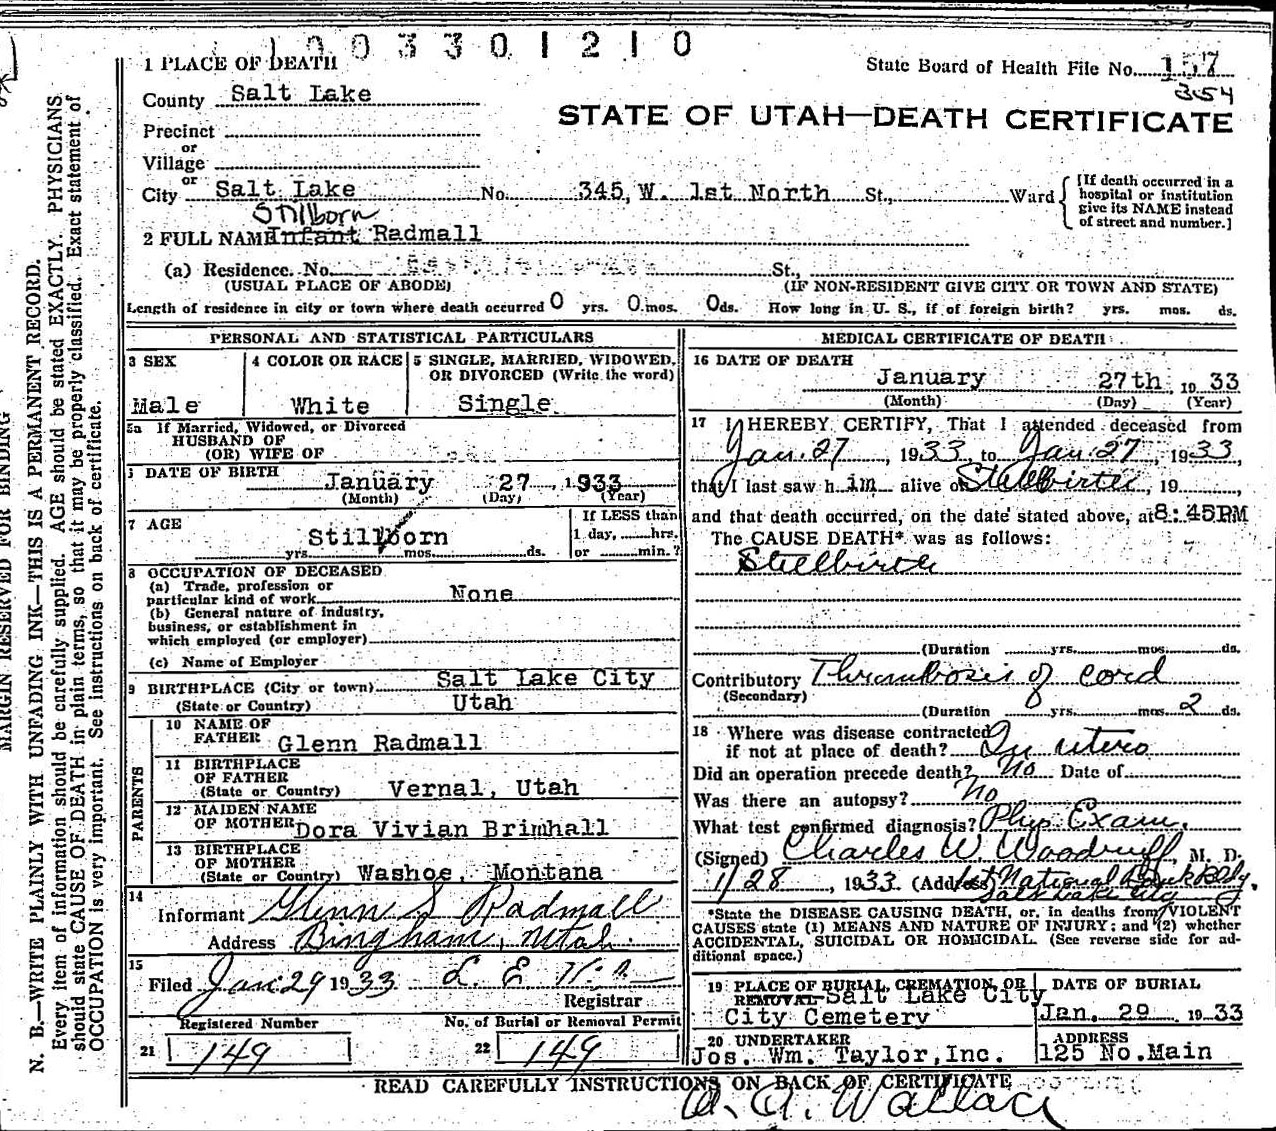 1003301210
1 PLACE OF DEATH
State Board of Health File No. 157
354
County Salt Lake
STATE OF UTAH—DEATH CERTIFICATE
Precinct
or
Village
or
City Salt Lake No. 345, W. 1st North St., Ward
[If death occurred in a hospital or institution give its NAME instead of street and number.]
Stilborn
2 FULL NAME Infant Radmall
(a) Residence. No. St.,
(USUAL PLACE OF ABODE) (IF NON-RESIDENT GIVE CITY OR TOWN AND STATE)
Length of residence in city or town where death occurred 0 yrs. 0 mos. 0 ds. How long in U. S., if of foreign birth? yrs. mos. ds.
PERSONAL AND STATISTICAL PARTICULARS
3 SEX
Male
4 COLOR OR RACE
White
5 SINGLE, MARRIED, WIDOWED,
OR DIVORCED (Write the word)
Single
5a If Married, Widowed, or Divorced
HUSBAND OF
(OR) WIFE OF
DATE OF BIRTH January 27, 1933
(Month) (Day) (Year)
7 AGE
Stillborn
yrs. mos. ds.
If LESS than
1 day, hrs.
or min.?
8 OCCUPATION OF DECEASED
(a) Trade, profession or
particular kind of work None
(b) General nature of industry,
business, or establishment in
which employed (or employer)
(c) Name of Employer
9 BIRTHPLACE (City or town) Salt Lake City
(State or Country) Utah
PARENTS
10 NAME OF
FATHER Glenn Radmall
11 BIRTHPLACE
OF FATHER
(State or Country) Vernal, Utah
12 MAIDEN NAME
OF MOTHER Dora Vivian Brimhall
13 BIRTHPLACE
OF MOTHER
(State or Country) Washoe, Montana
14
Informant Glenn S Radmall
Address Bingham, Utah.
15
Filed Jan 29 1933 L. E.
Registrar
Registered Number
21 149
No. of Burial or Removal Permit
22 149
MEDICAL CERTIFICATE OF DEATH
16 DATE OF DEATH
January 27th 1933
(Month) (Day) (Year)
17 I HEREBY CERTIFY, That I attended deceased from
Jan. 27, 1933, to Jan. 27, 1933,
that I last saw him alive on Stillbirth, 19
and that death occurred, on the date stated above, at 8:45PM
The CAUSE DEATH* was as follows:
Stillbirth
(Duration yrs. mos. ds.
Contributory Thrombosis of cord
(Secondary)
(Duration yrs. mos. 2 ds.
18 Where was disease contracted
if not at place of death? In utero
Did an operation precede death? No Date of
Was there an autopsy? No
What test confirmed diagnosis? Phys Exam.
(Signed) Charles W Woodruff, M. D.
1/28, 1933 (Address) 1st National Bank Bldg.
Salt Lake City
*State the DISEASE CAUSING DEATH, or, in deaths from VIOLENT
CAUSES state (1) MEANS AND NATURE OF INJURY; and (2) whether
ACCIDENTAL, SUICIDAL OR HOMICIDAL. (See reverse side for additional space.)
19 PLACE OF BURIAL, CREMATION, OR
REMOVAL Salt Lake City
City Cemetery
DATE OF BURIAL
Jan. 29 1933
20 UNDERTAKER
Jos. Wm. Taylor, Inc.
ADDRESS
125 No. Main
READ CAREFULLY INSTRUCTIONS ON BACK OF CERTIFICATE
A. A. Wallace
MARGIN RESERVED FOR BINDING
N. B.—WRITE PLAINLY WITH UNFADING INK—THIS IS A PERMANENT RECORD.
Every item of information should be carefully supplied. AGE should be stated EXACTLY. PHYSICIANS
should state CAUSE OF DEATH in plain terms, so that it may be properly classified. Exact statement of
OCCUPATION is very important. See instructions on back of certificate.